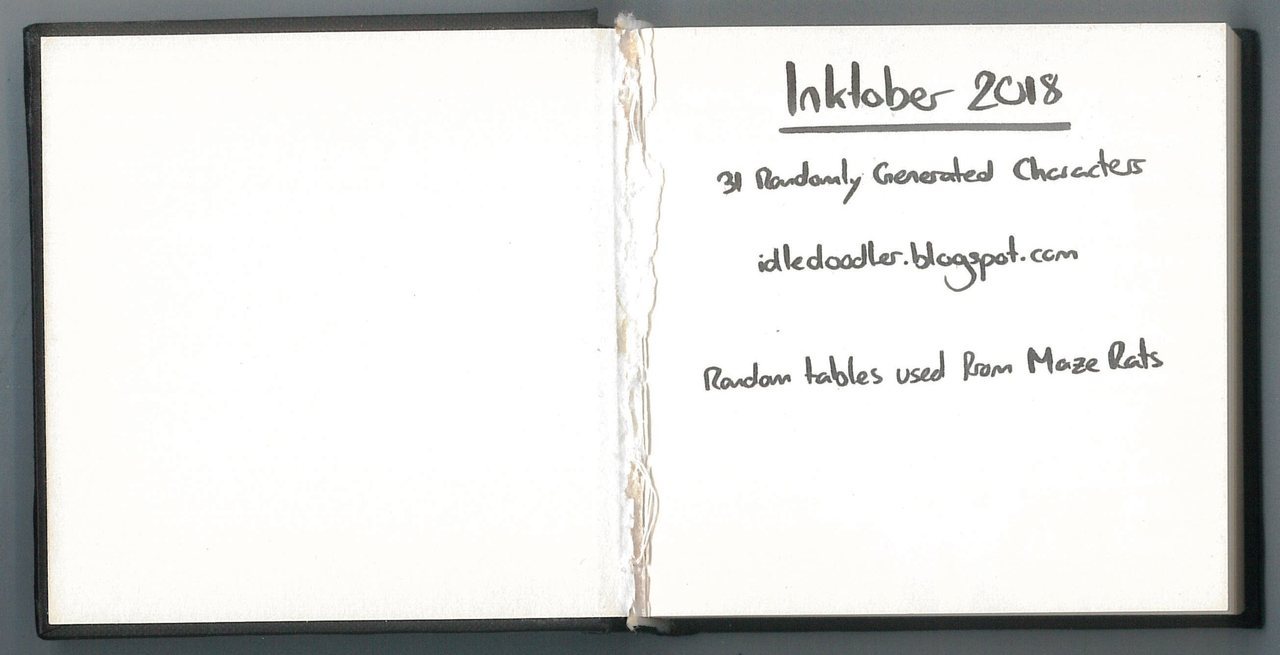 Inktober 2018
31 Randomly Generated Characters
idledoodler.blogspot.com
Random tables used from Maze Rats